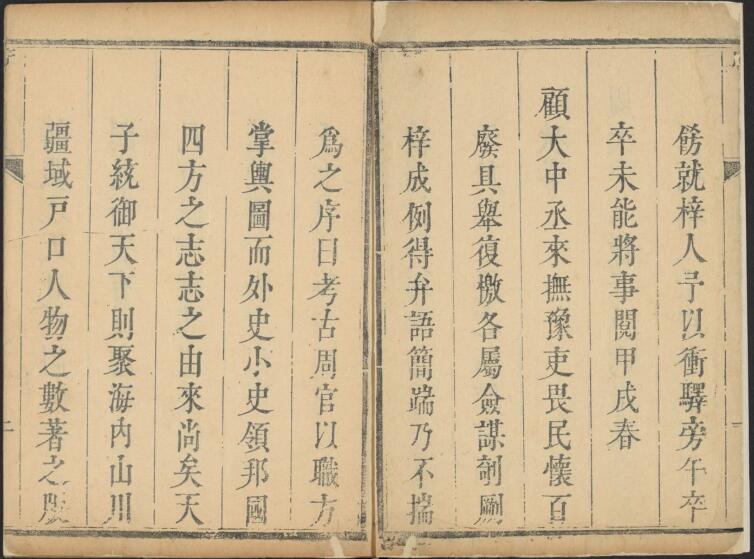 飭就梓人予以衝驛旁午卒
卒未能將事閱甲戌春
顧大中丞來撫豫吏畏民懷百
廢具舉復檄各屬僉謀剞劂
梓成例得弁語簡端乃不揣
爲之序曰考古周官以職方
掌輿圖而外史小史領邦國
四方之志志之由來尚矣天
子統御天下則聚海內山川
疆域戸口人物之數著之版